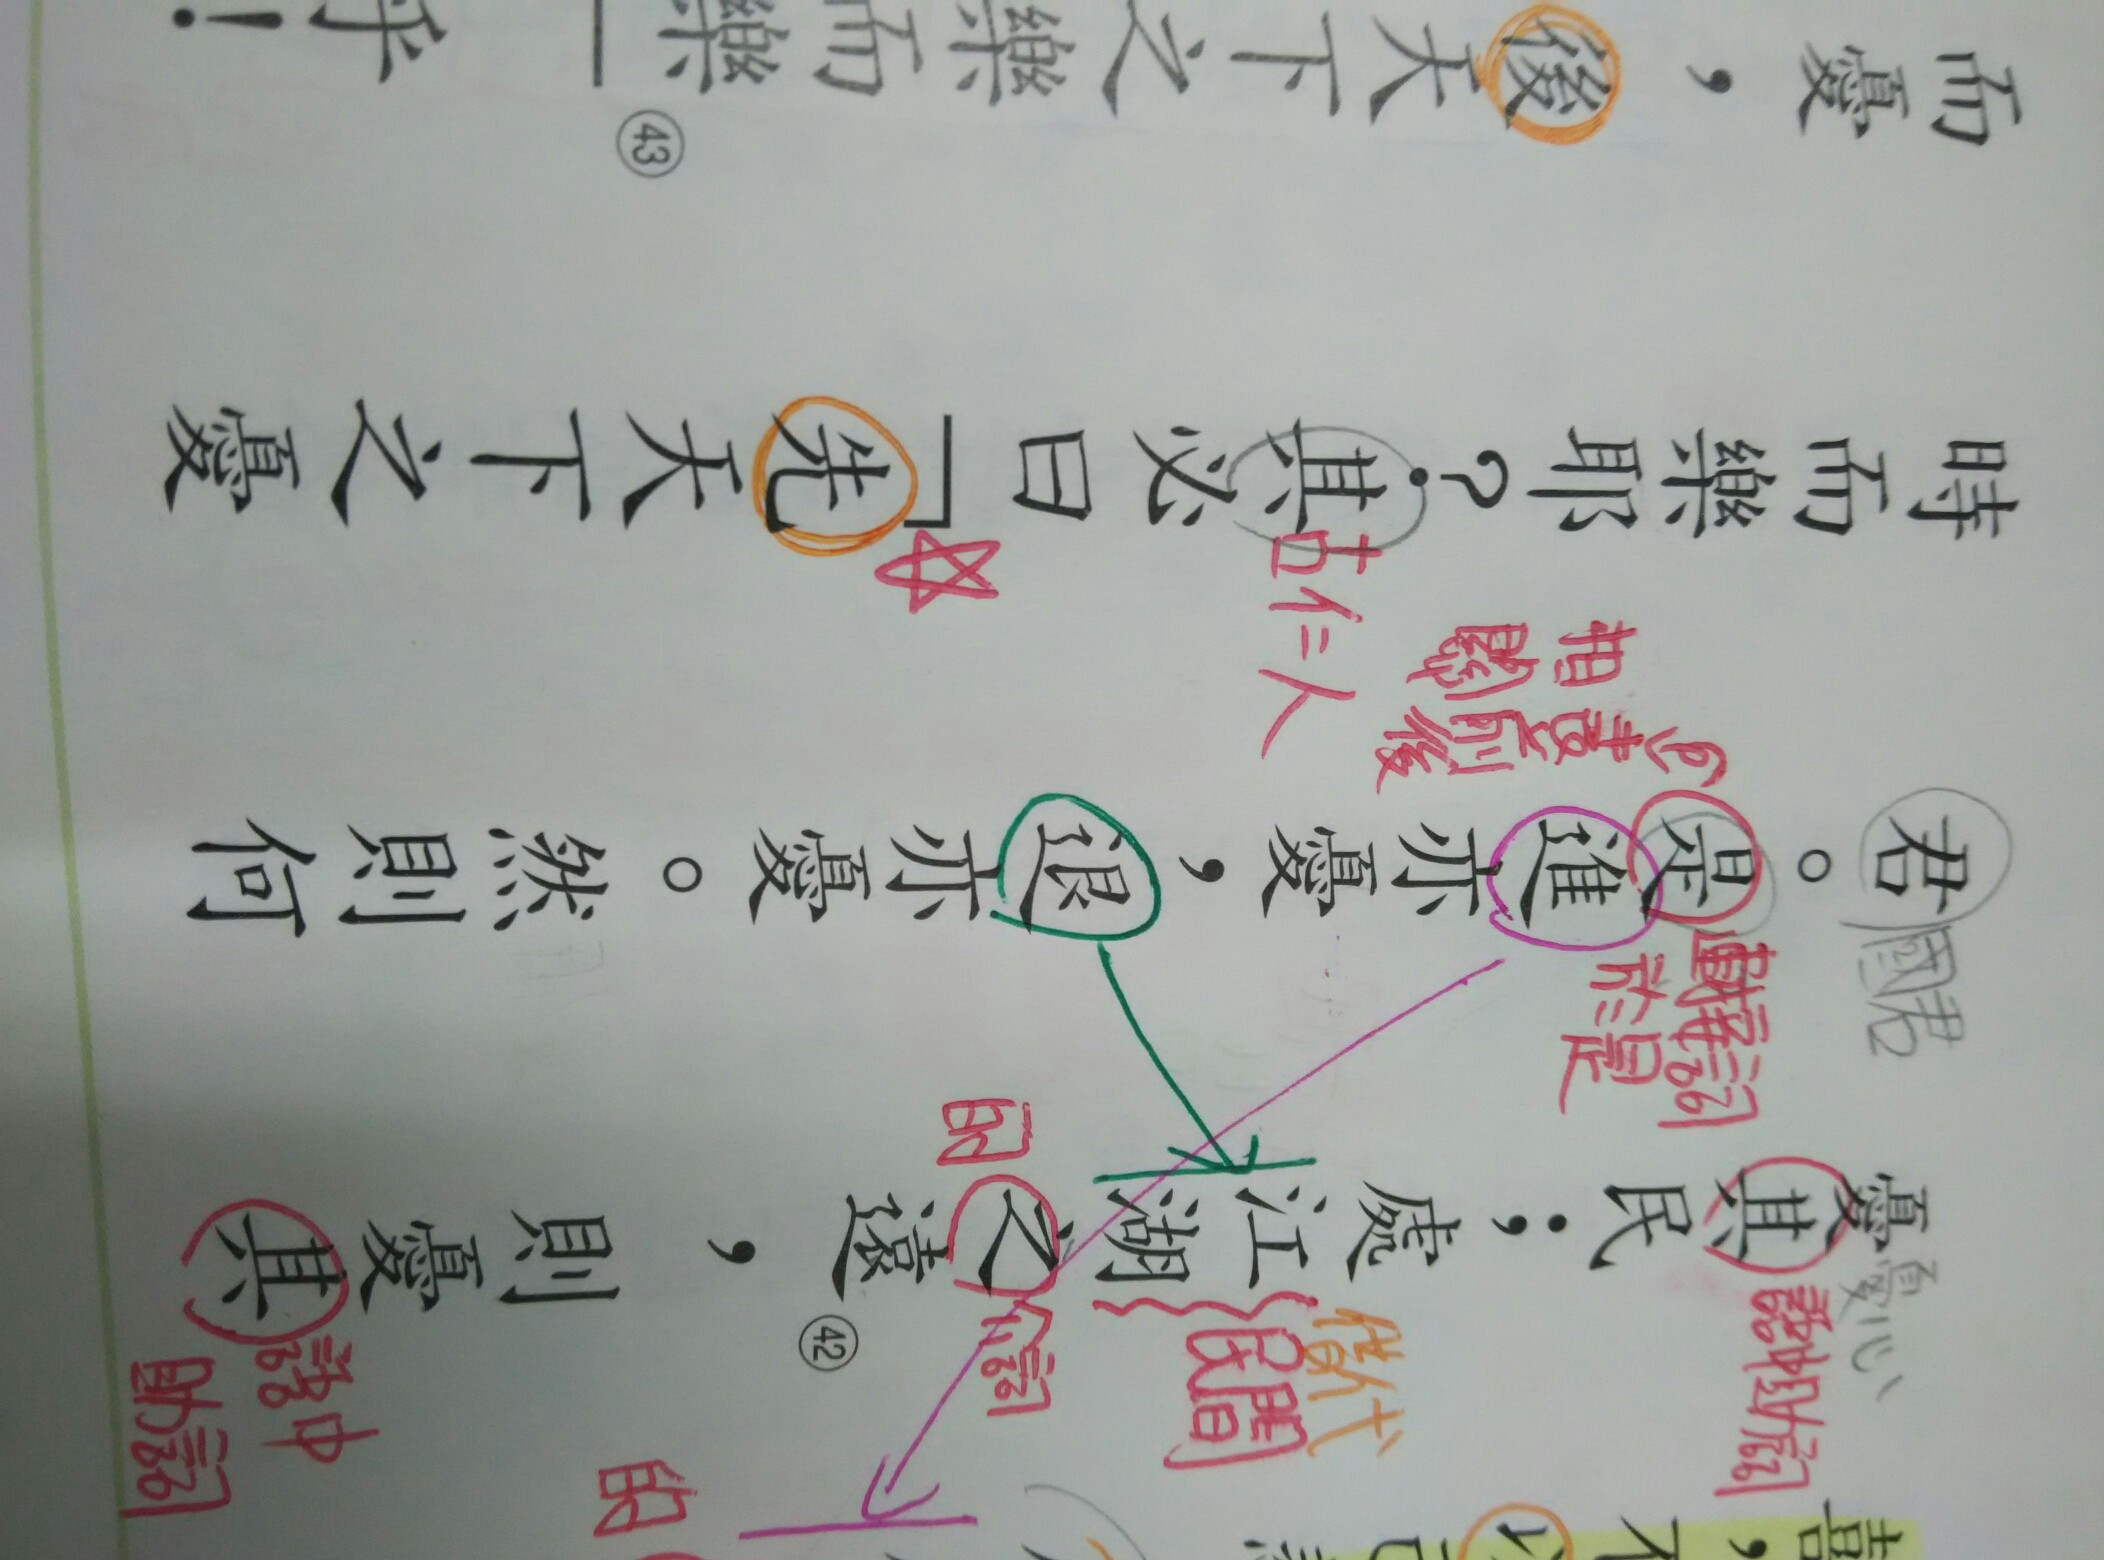 憂其民；處江湖之遠，則憂其
憂心
語中助詞
借代
民間
介詞
的
㊷
語中
助詞
的
君。是進亦憂，退亦憂。然則何
國君
於是
時而樂耶？其必曰「先天下之憂
古仁人
而憂，後天下之樂而樂」乎！
㊸